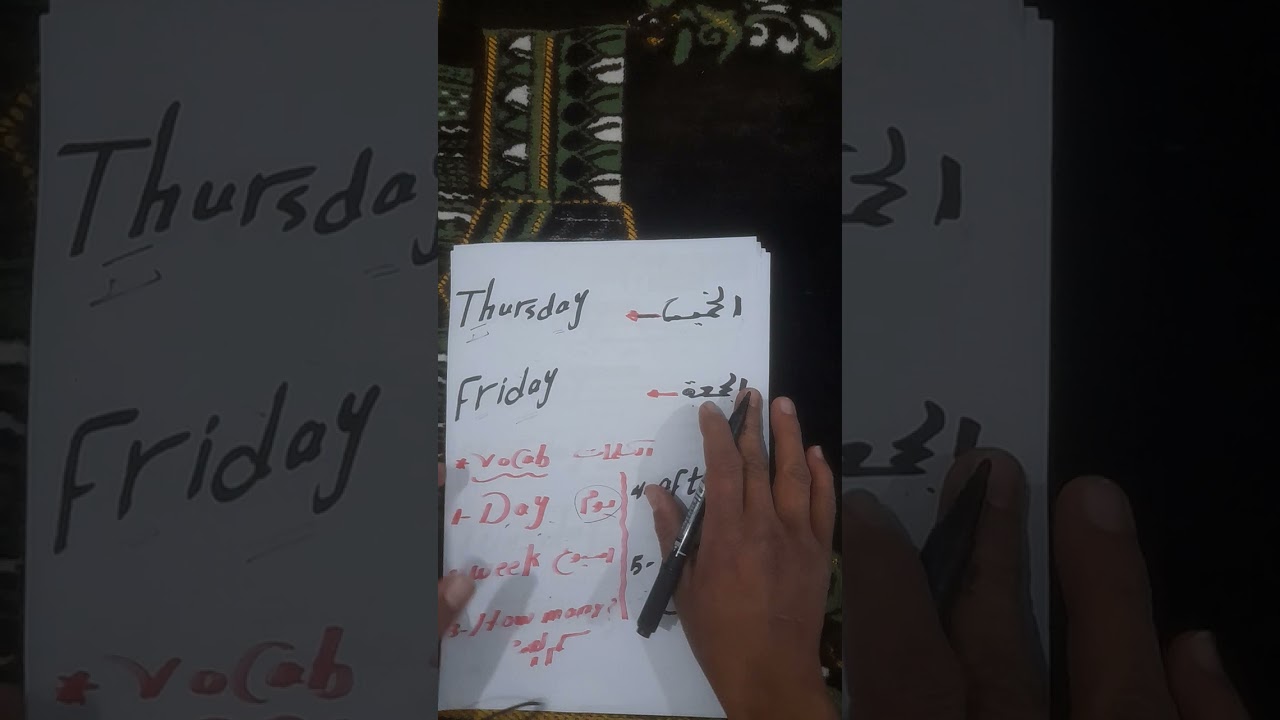 Thursday ← الخميس
Friday ← الجمعة
* Vocab الكلمات
1- Day يوم
week اسبوع
3- How many?
4- aft
5-